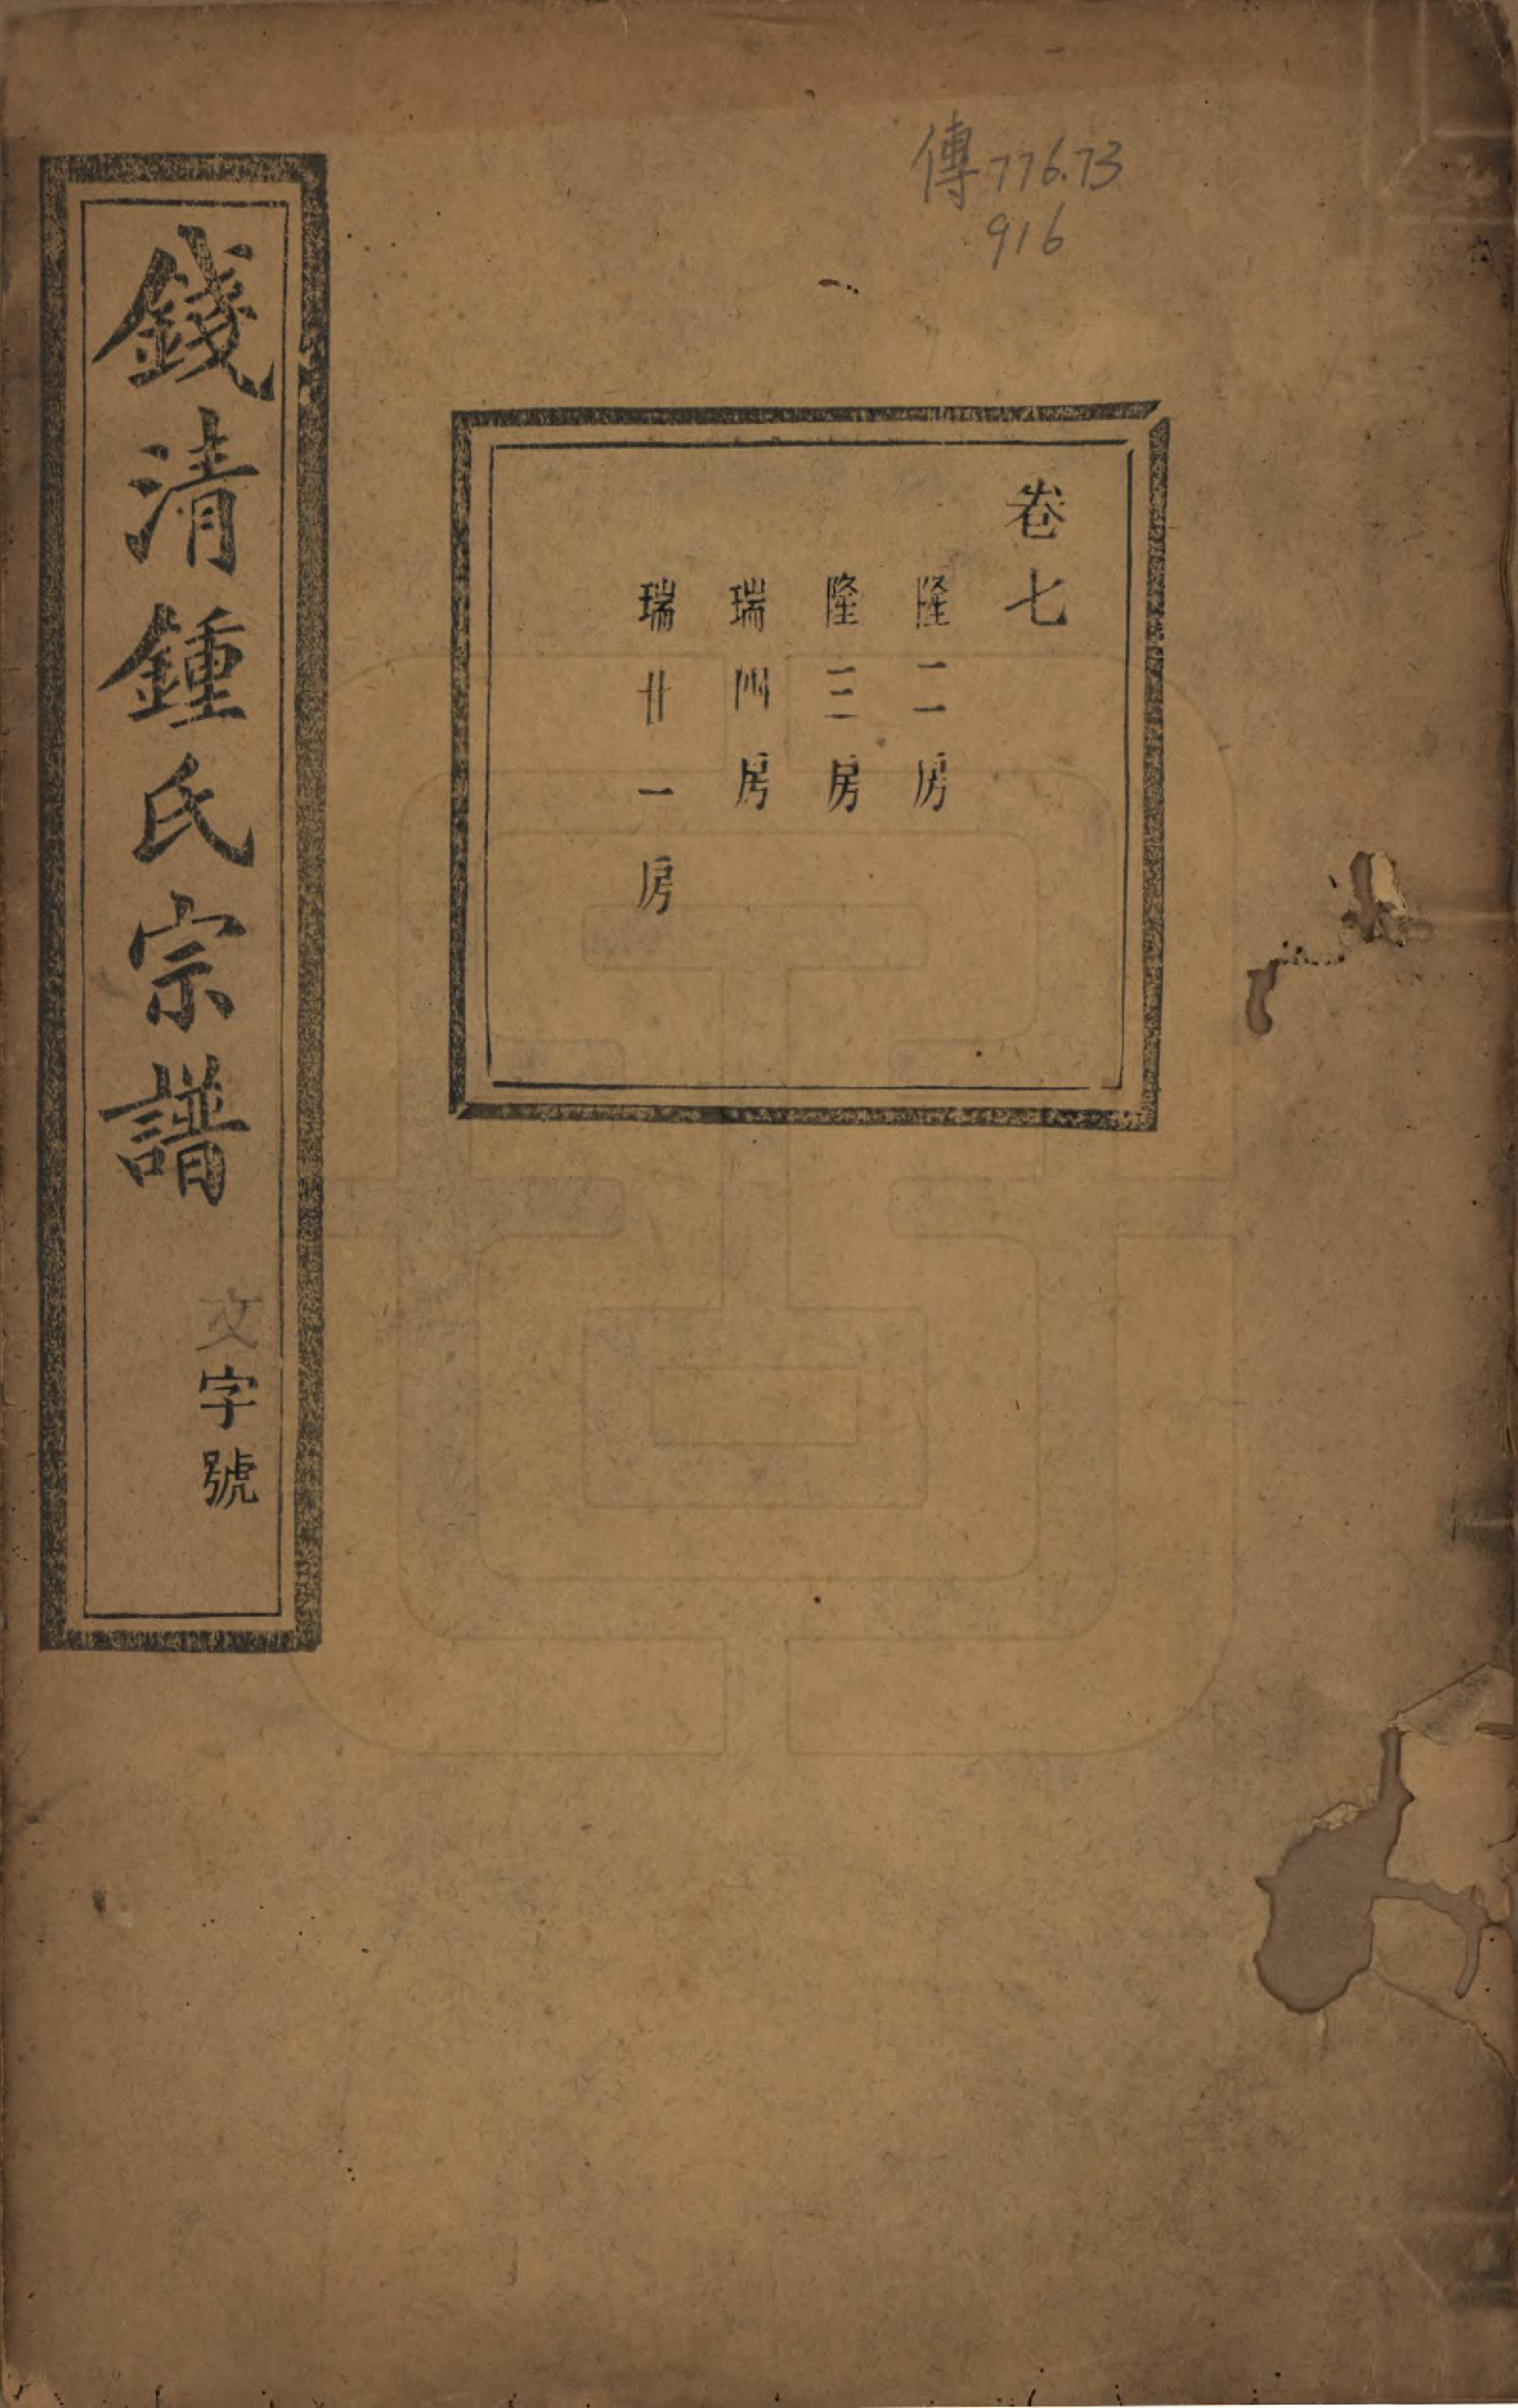 傳776.73
916
卷七
隆二房
隆三房
瑞四房
瑞廿一房
錢清鍾氏宗譜
文字號